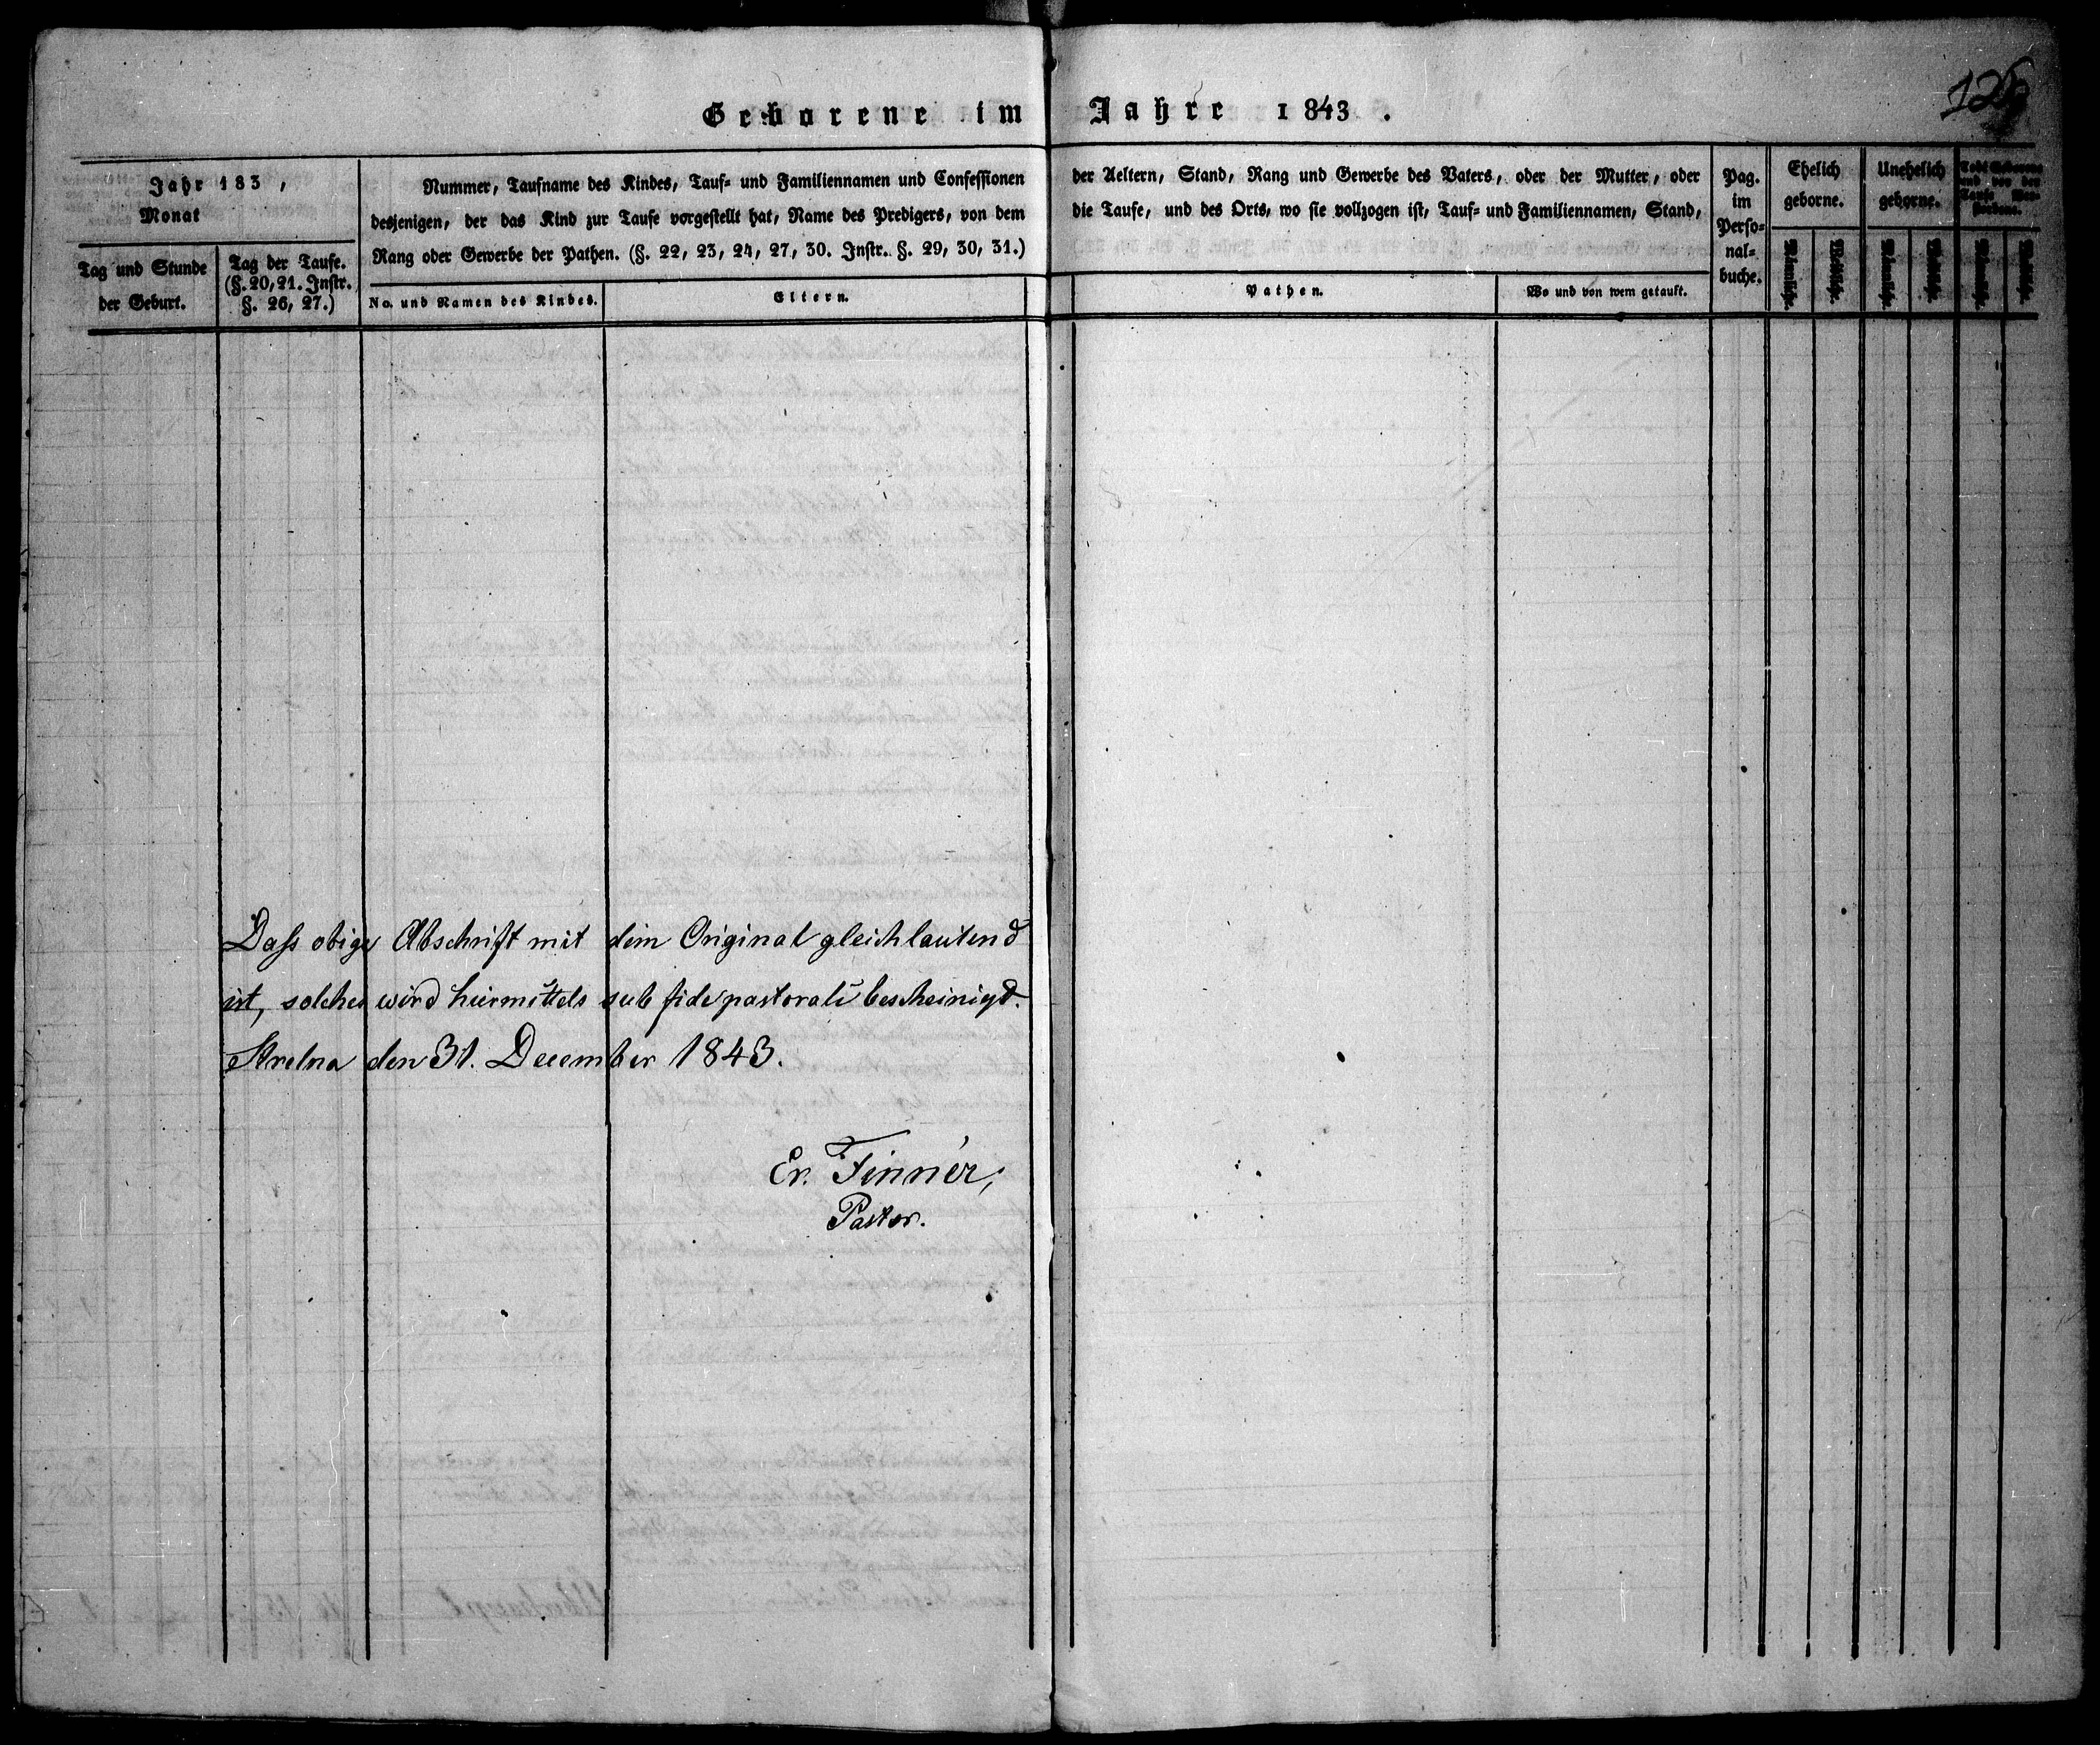 Geborene im Jahre 1843.
Jahr 183 ,
Monat
Tag und Stunde
der Geburt.
Tag der Taufe.
(§. 20, 21. Instr.
§. 26, 27.)
Nummer, Taufname des Kindes, Tauf- und Familiennamen und Confessionen
desjenigen, der das Kind zur Taufe vorgestellt hat, Name des Predigers, von dem
Rang oder Gewerbe der Pathen. (§. 22, 23, 24, 27, 30. Instr. §. 29, 30, 31.)
No. und Namen des Kindes.
Eltern.
der Aeltern, Stand, Rang und Gewerbe des Vaters, oder der Mutter, oder
die Taufe, und des Orts, wo sie vollzogen ist, Tauf- und Familiennamen, Stand,
Pathen.
Wo und von wem getauft.
Pag.
im
Perso-
nal-
buche.
Ehelich
geborne.
Männliche.
Weibliche.
Unehelich
geborne.
Männliche.
Weibliche.
Männliche.
Weibliche.
Daß obige Abschrift mit dem Original gleichlautend
ist, solches wird hiermittels sub fide pastorali bescheinigt.
Strelna den 31. December 1843.
Er. Finnér,
Pastor.